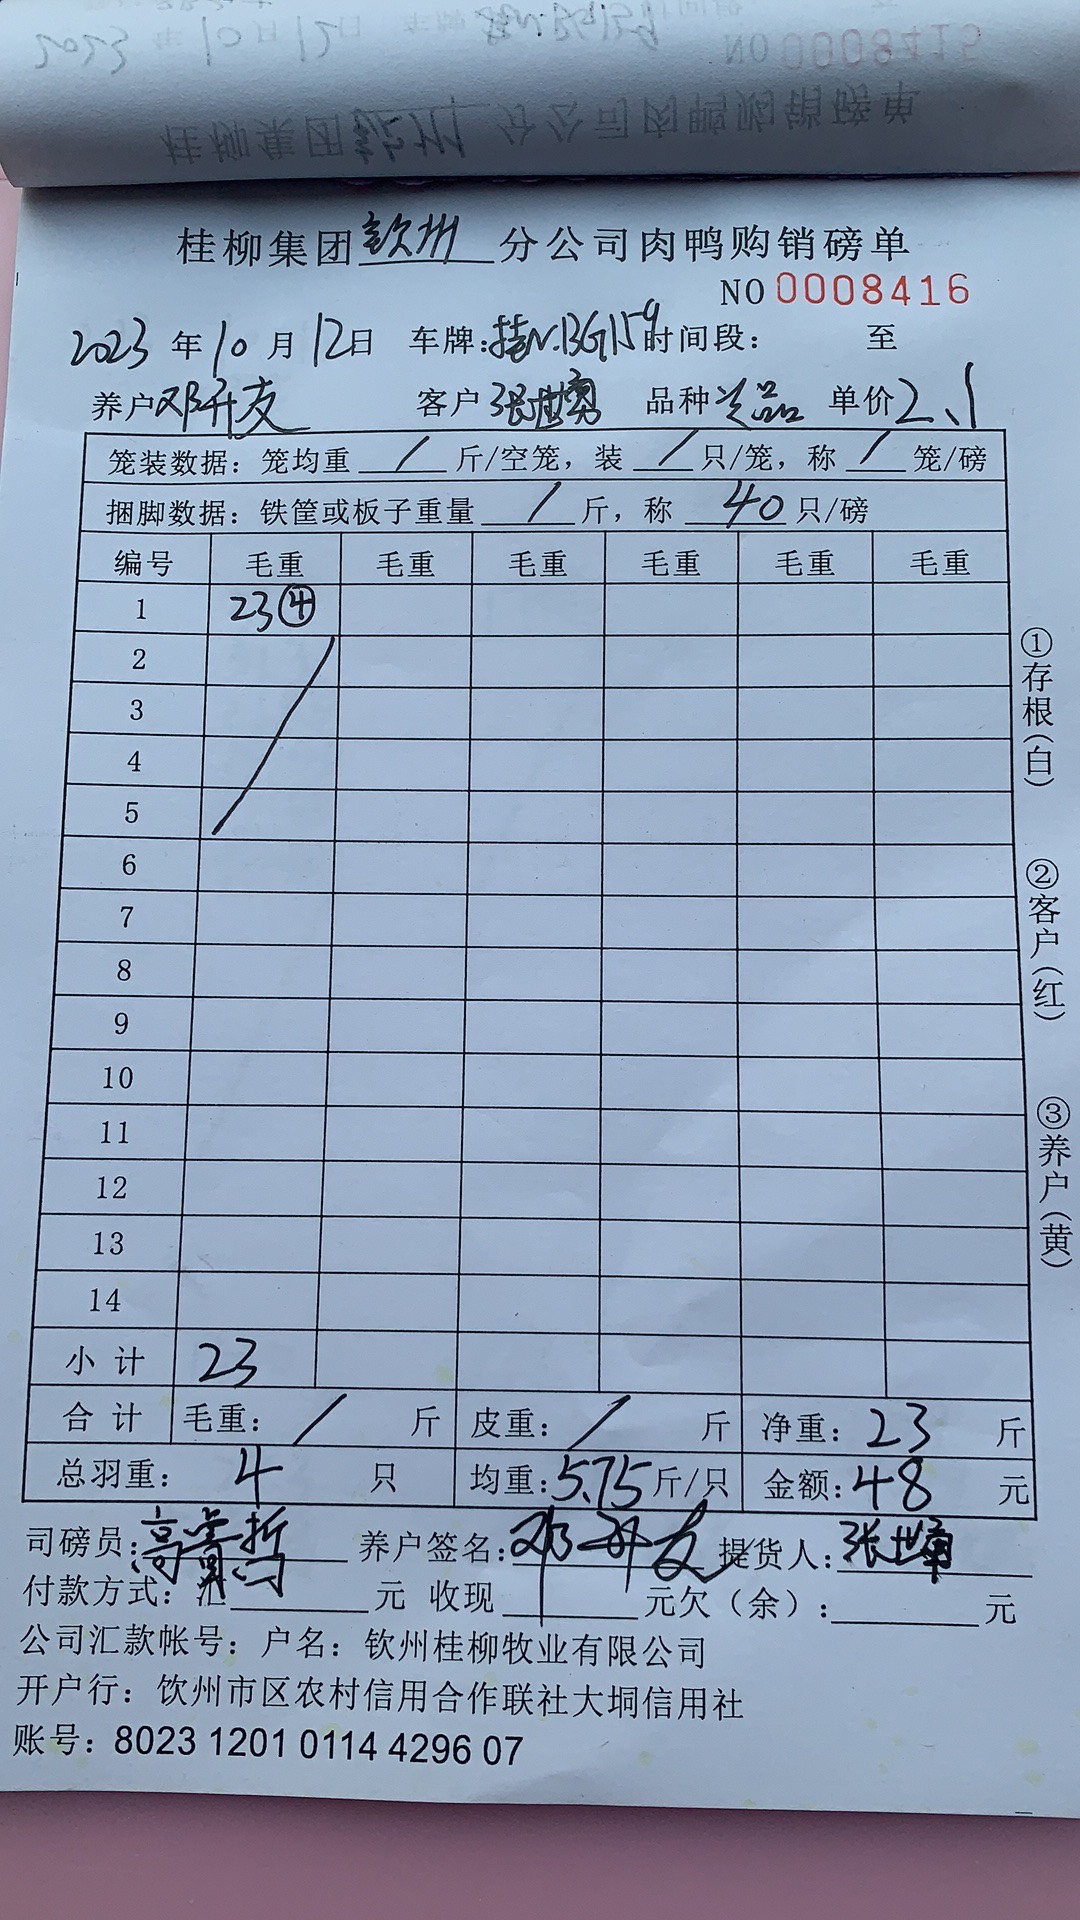 2023年10月12日
NO 0008415
桂柳集团钦州分公司肉鸭购销磅单
桂柳集团钦州分公司肉鸭购销磅单
NO 0008416
2023年10月12日 车牌:桂N.BG159时间段: 至
养户邓开支 客户张世勇 品种 品 单价2.1
笼装数据: 笼均重 / 斤/空笼, 装 / 只/笼, 称 / 笼/磅
捆脚数据: 铁筐或板子重量 / 斤, 称 40 只/磅
编号 毛重 毛重 毛重 毛重 毛重 毛重
1 23④
2
3
4
5
6
7
8
9
10
11
12
13
14
小计 23
合计 毛重: / 斤 皮重: / 斤 净重: 23 斤
总羽重: 4 只 均重:5.75斤/只 金额:48 元
司磅员:高 哲 养户签名:邓开支 提货人:张世勇
付款方式: 汇 元 收现 元欠(余): 元
公司汇款帐号: 户名: 钦州桂柳牧业有限公司
开户行: 钦州市区农村信用合作联社大垌信用社
账号: 8023 1201 0114 4296 07
①存根(白)
②客户(红)
③养户(黄)